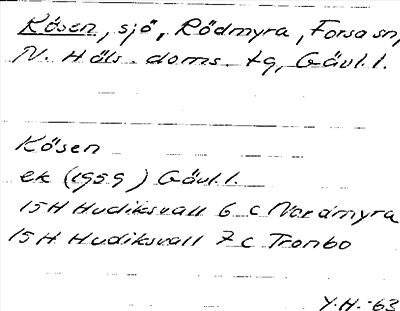 Kösen, sjö, Rödmyra, Forsa sn,
N. Häls. doms. tg, Gävl.l.
Kösen
ek (1959) Gävl.l.
15H Hudiksvall 6 c Nordmyra
15H Hudiksvall 7c Tronbo
Y.H.-63